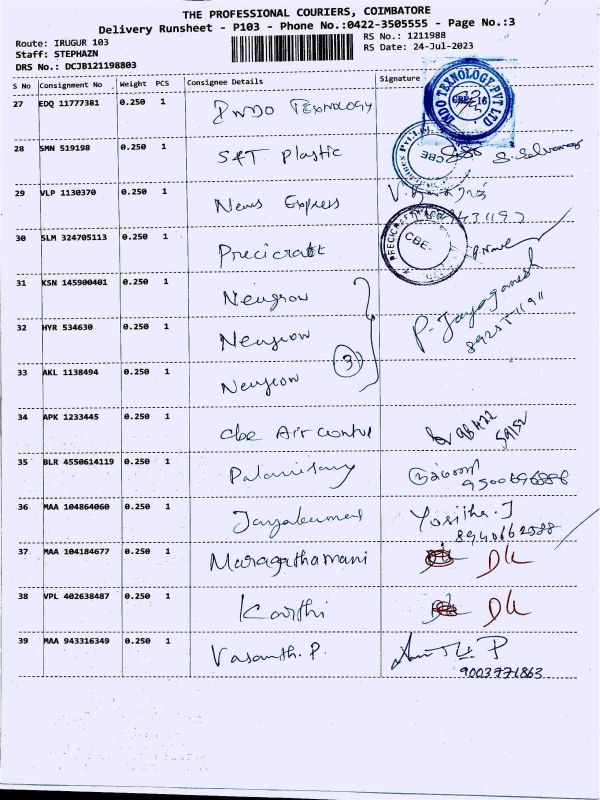 THE PROFESSIONAL COURIERS, COIMBATORE
Delivery Runsheet - P103 - Phone No.:0422-3505555 - Page No.:3
Route: IRUGUR 103
RS No.: 1211988
Staff: STEPHAZN
RS Date: 24-Jul-2023
DRS No.: DCJB121198803
S No Consignment No Weight PCS Consignee Details Signature
27 EDQ 11777381 0.250 1 INDO TEXNOLOGY INDO TEXNOLOGY PVT LTD CBE-16
28 SMN 519198 0.250 1 S&T Plastic CBE S. Selvaraj
29 VLP 1130370 0.250 1 News Express
30 SLM 324705113 0.250 1 Precicraft PRECICRAFT CBE
31 KSN 145900401 0.250 1 Neugrow
32 HYR 534630 0.250 1 Neugrow P. Jayaganesh
33 AKL 1138494 0.250 1 Neugrow 3
34 APK 1233445 0.250 1 Cbe Air Control
35 BLR 4550614119 0.250 1 Palanisamy
36 MAA 104864060 0.250 1 Jayakumar
37 MAA 104184677 0.250 1 Maragathamani
38 VPL 402638487 0.250 1 Karthi
39 MAA 943316349 0.250 1 Vasanth. P.
9003771863